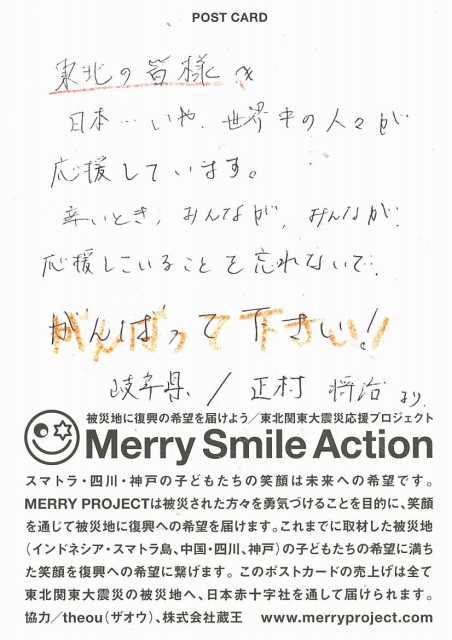 POST CARD
東北の皆様を
日本…いや、世界中の人々が
応援しています。
辛いとき、みんなが、みんなが、
応援していることを忘れないで、
がんばって下さい!
岐阜県/正村 将治より
被災地に復興の希望を届けよう/東北関東大震災応援プロジェクト
Merry Smile Action
スマトラ・四川・神戸の子どもたちの笑顔は未来への希望です。
MERRY PROJECTは被災された方々を勇気づけることを目的に、笑顔
を通じて被災地に復興への希望を届けます。これまでに取材した被災地
(インドネシア・スマトラ島、中国・四川、神戸)の子どもたちの希望に満ち
た笑顔を復興への希望に繋げます。このポストカードの売上げは全て
東北関東大震災の被災地へ、日本赤十字社を通して届けられます。
協力/theou(ザオウ)、株式会社蔵王 www.merryproject.com